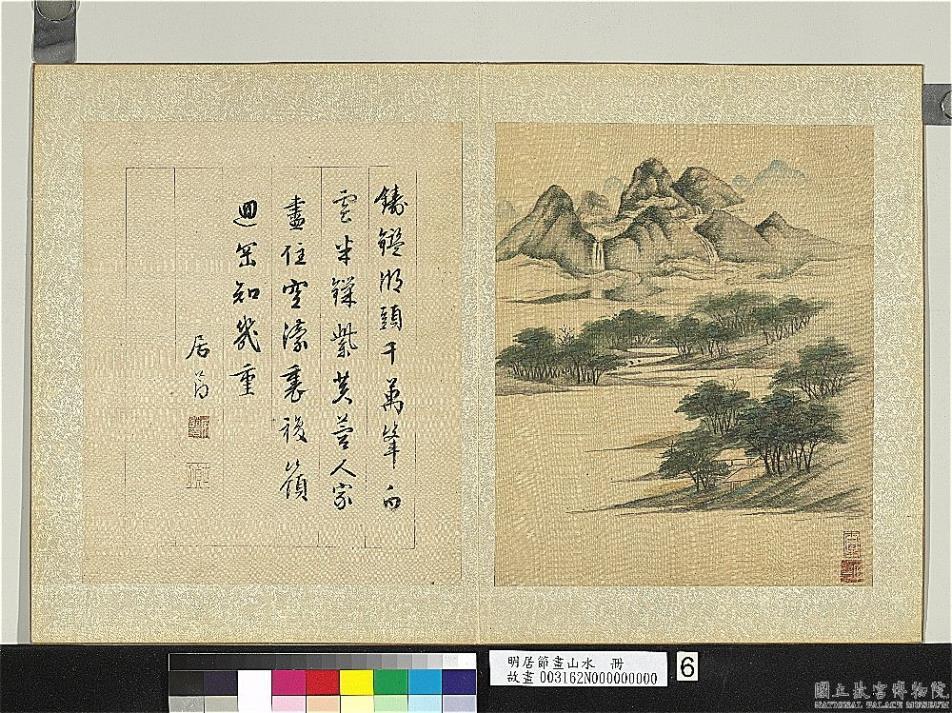 鑄鑑湖頭千萬峯白
雲半鎖紫芙蓉人家
盡住空濛裏複嶺
迴岡知幾重
居節
明居節畫山水 冊
故畫003162N000000000
6
國立故宮博物院
NATIONAL PALACE MUSEUM